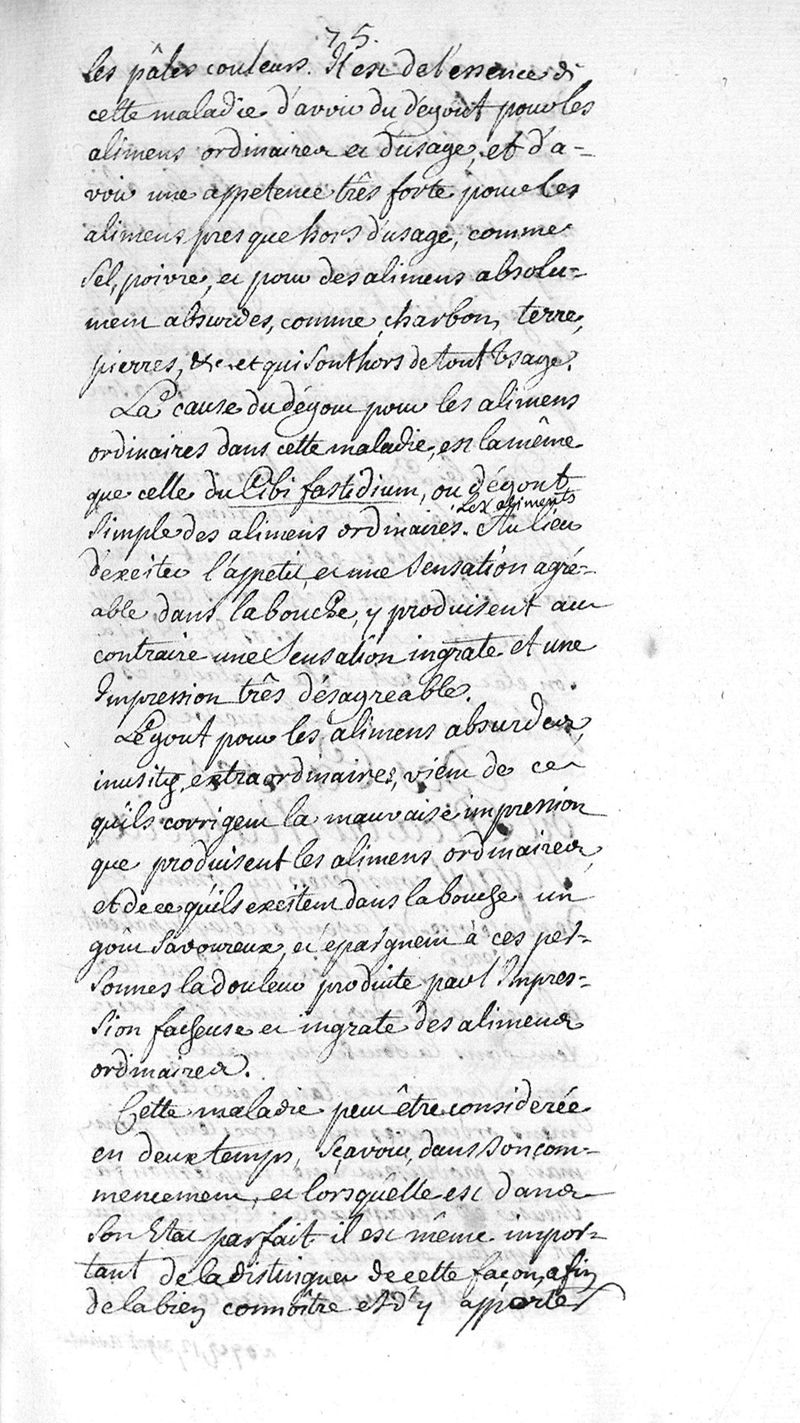 75.
les pâles couleurs. Il est de l'essence de
cette maladie d'avoir du dégout pour les
alimens ordinaires et d'usage, et d'a-
voir une appetence três forte pour les
alimens presque hors d'usage, comme
sel, poivre, et pour des alimens absolu-
ment absurdes, comme, charbon, terre,
pierres, &c. et qui sont hors de tout Usage.
La cause du dégout pour les alimens
ordinaires dans cette maladie, est la même
que celle du Cibi fastidium, ou dégout
simple des alimens ordinaires. Les aliments Au lieu
d'exciter l'appetit, et une sensation agré-
able dans la bouche, y produisent au
contraire une sensation ingrate et une
Impression três désagreable.
Le gout pour les alimens absurdes,
inusités, extraordinaires, vient de ce
qu'ils corrigent la mauvaise impression
que produisent les alimens ordinaires,
et de ce qu'ils excitent dans la bouche un
gout savoureux, et épargnent à ces per-
sonnes la douleur produite par l'Impres-
sion facheuse et ingrate des alimens
ordinaires.
Cette maladie peut être considerée
en deux temps, sçavoir, dans son com-
mencement, et lorsqu'elle est dans
son Etat parfait. il est même impor-
tant de la distinguer de cette façon, afin
de la bien connoître et d'y apporter